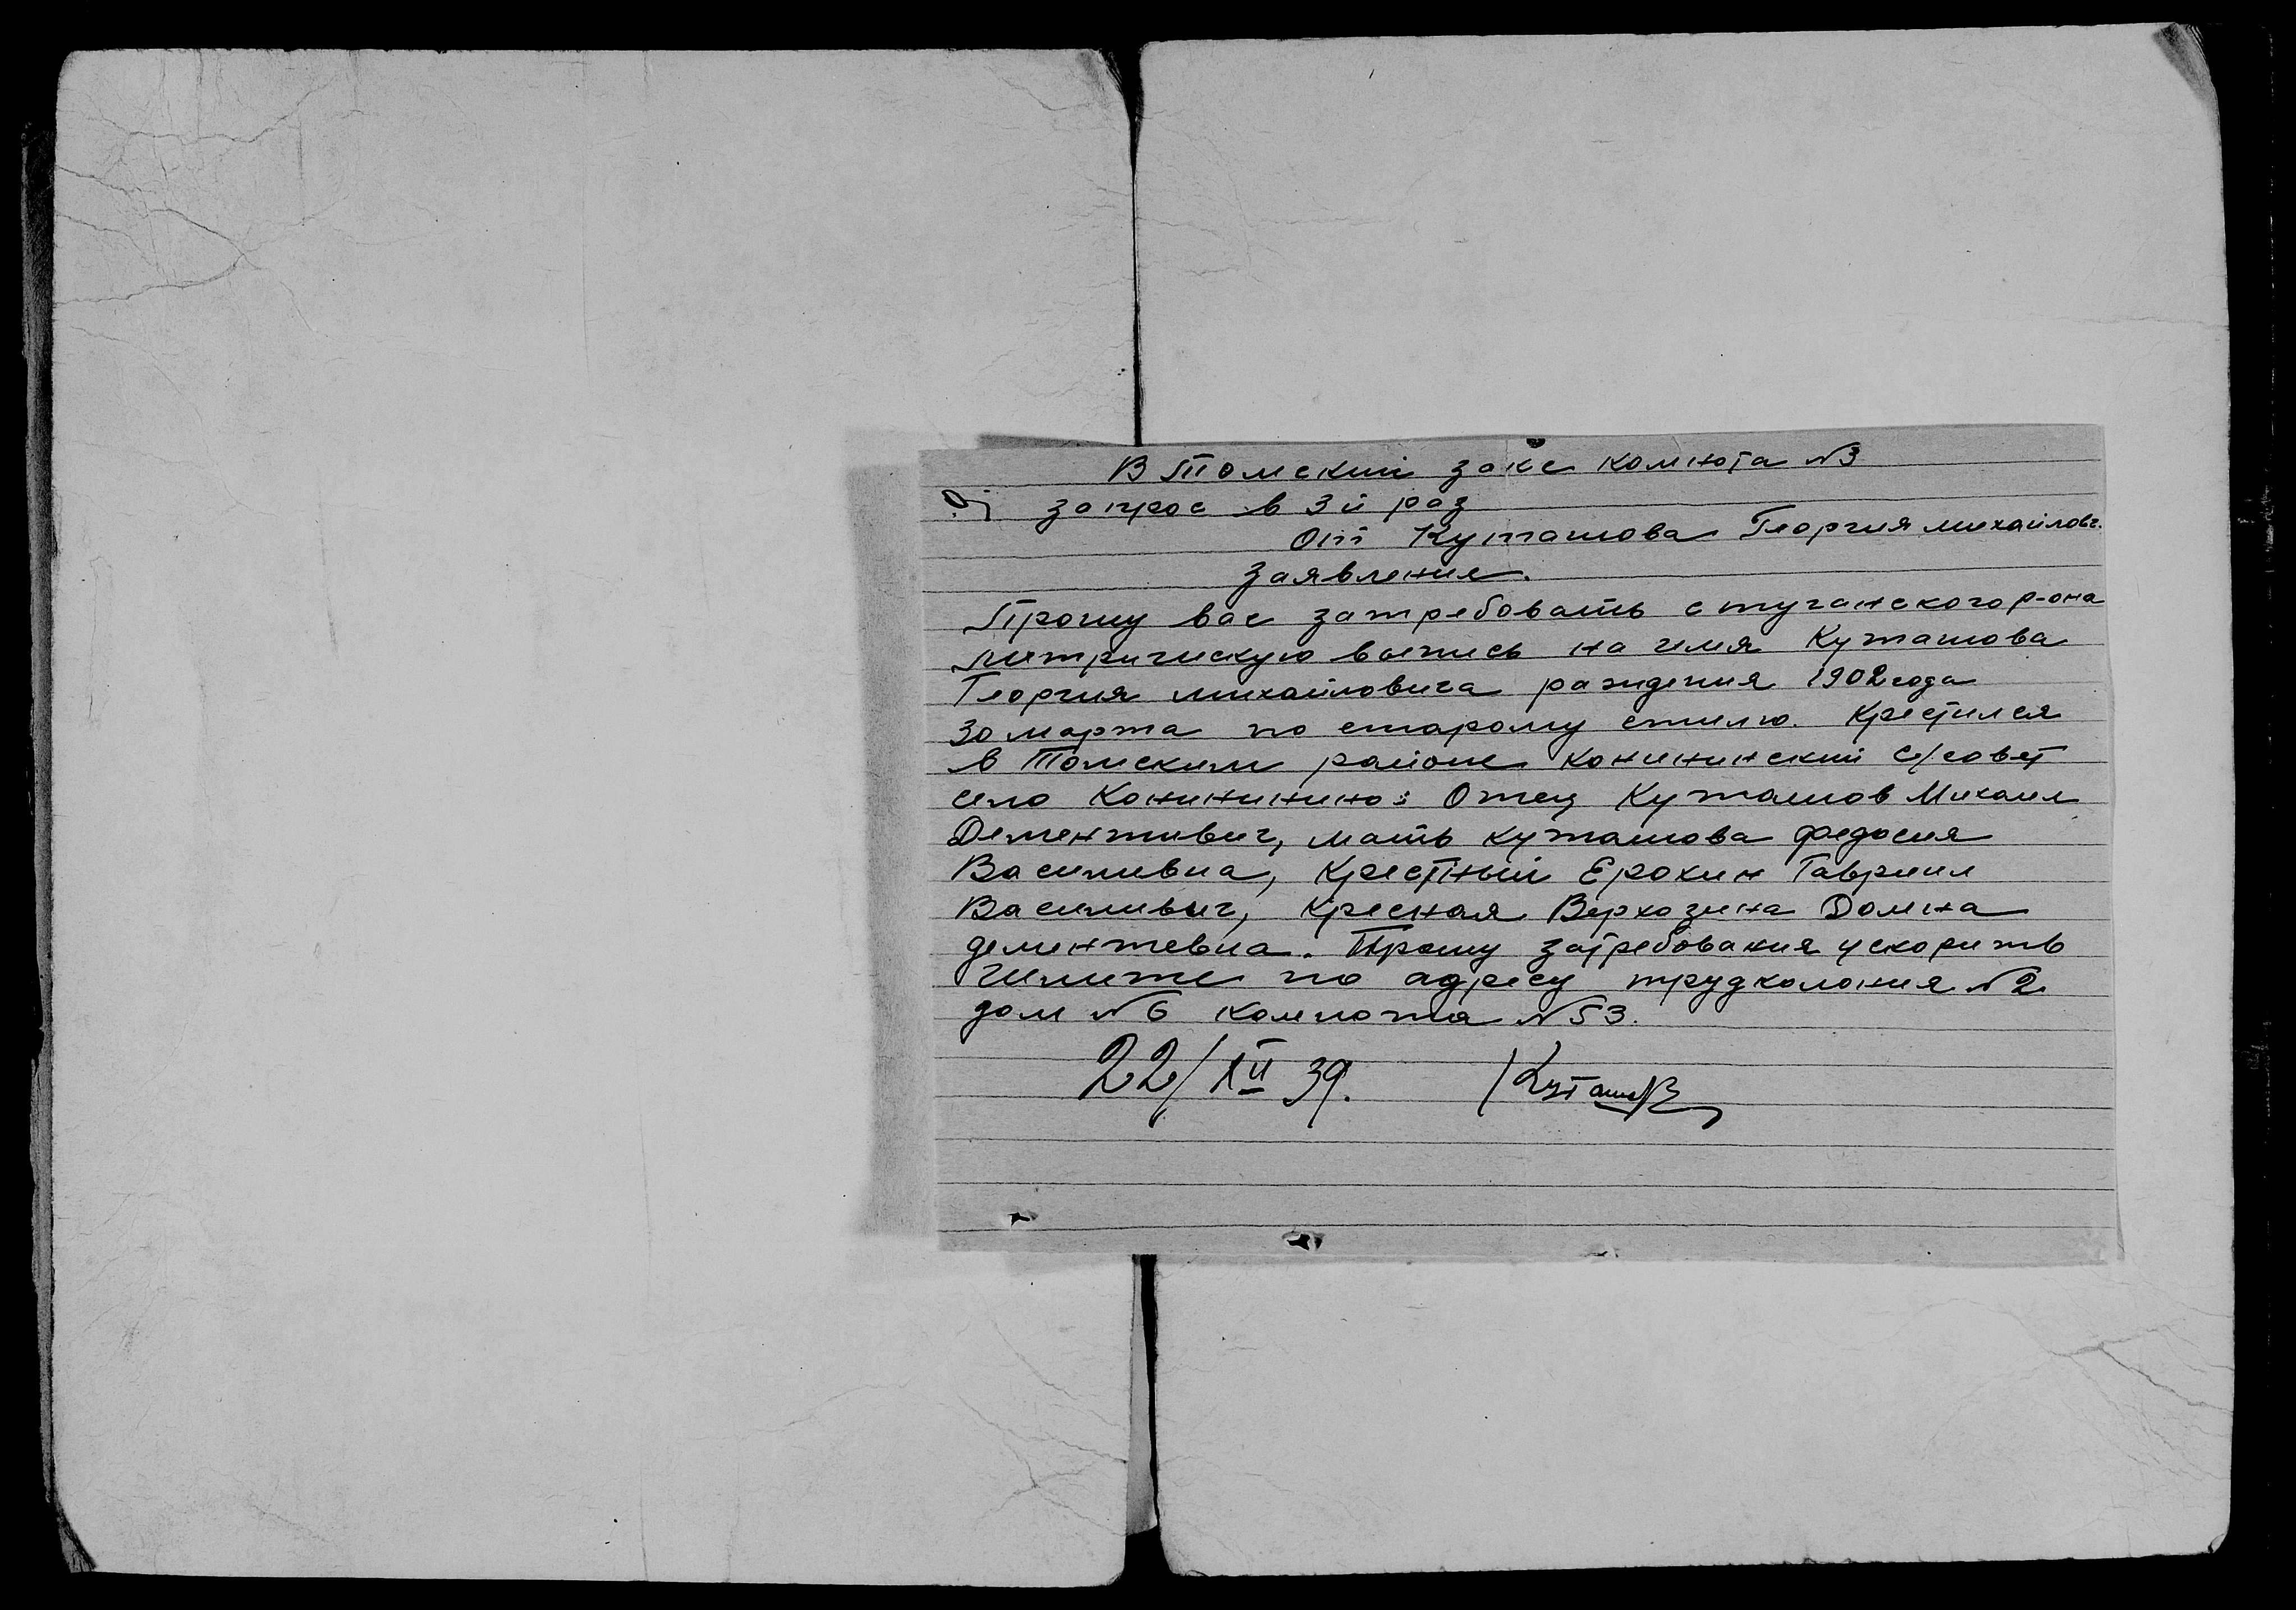 В Томский закс комнота №3
запрос в 3й раз
От Куташова Георгия михайлович.
Заявление.
Прошу вас затребовать с туганского р-она
метрическую выпись на имя Куташова
Георгия михайловича раждения 1902 года
30 марта по старому стилю. Крестился
в Томским районе Конининский с/совет
село Конининино: Отец Куташов Михаил
Дементивич, мать куташова федосия
Василивна, Крестный Ерохин Гавриил
Василивич, Кресная Верхозина Домна
дементевна. Прошу затребования ускорить
по адресу трудколония №2
дом №6 комнота №53.
22/XII 39. Куташов